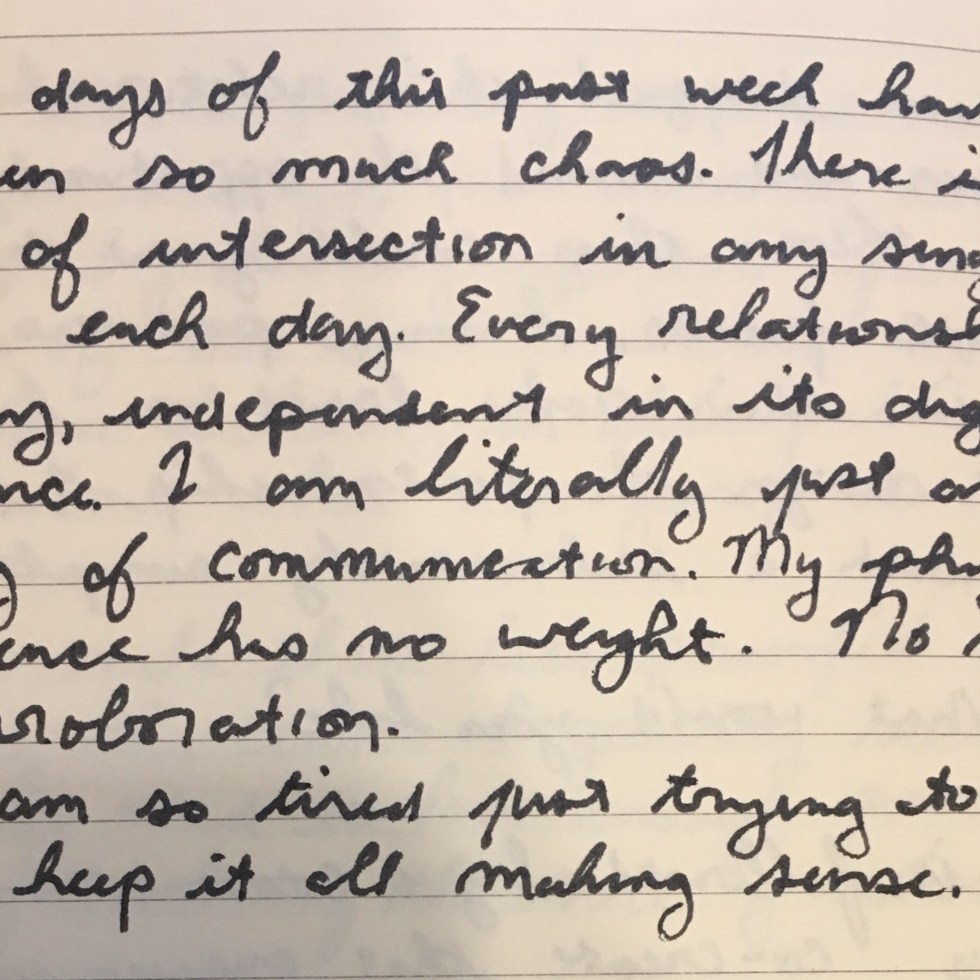 days of this past week hav
en so much chaos. There i
of intersection in any sing
each day. Every relationsh
ny, independent in its dig
nce. I am literally just a
of communication. My phy
ence has no weight. No
rroboration.
am so tired just trying to
keep it all making sense.